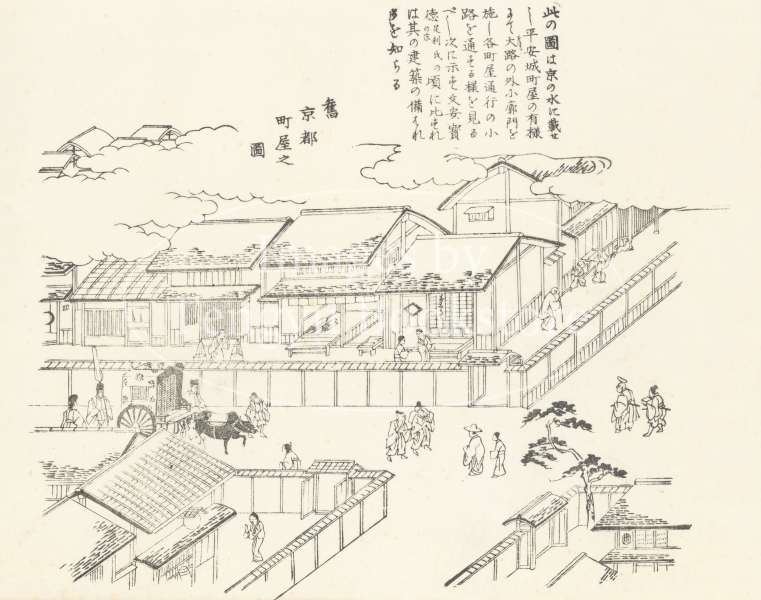 此の圖は京の水に載せ
し平安城町屋の有様
にて大路の外小廓門を
施し各町屋通行の小
路を通ずる様を見る
べし次に示す文安寳
德足利氏の末の頃に比すれ
は其の建築の備はれ
るを知らる
舊
京都
町屋之
圖
Images by